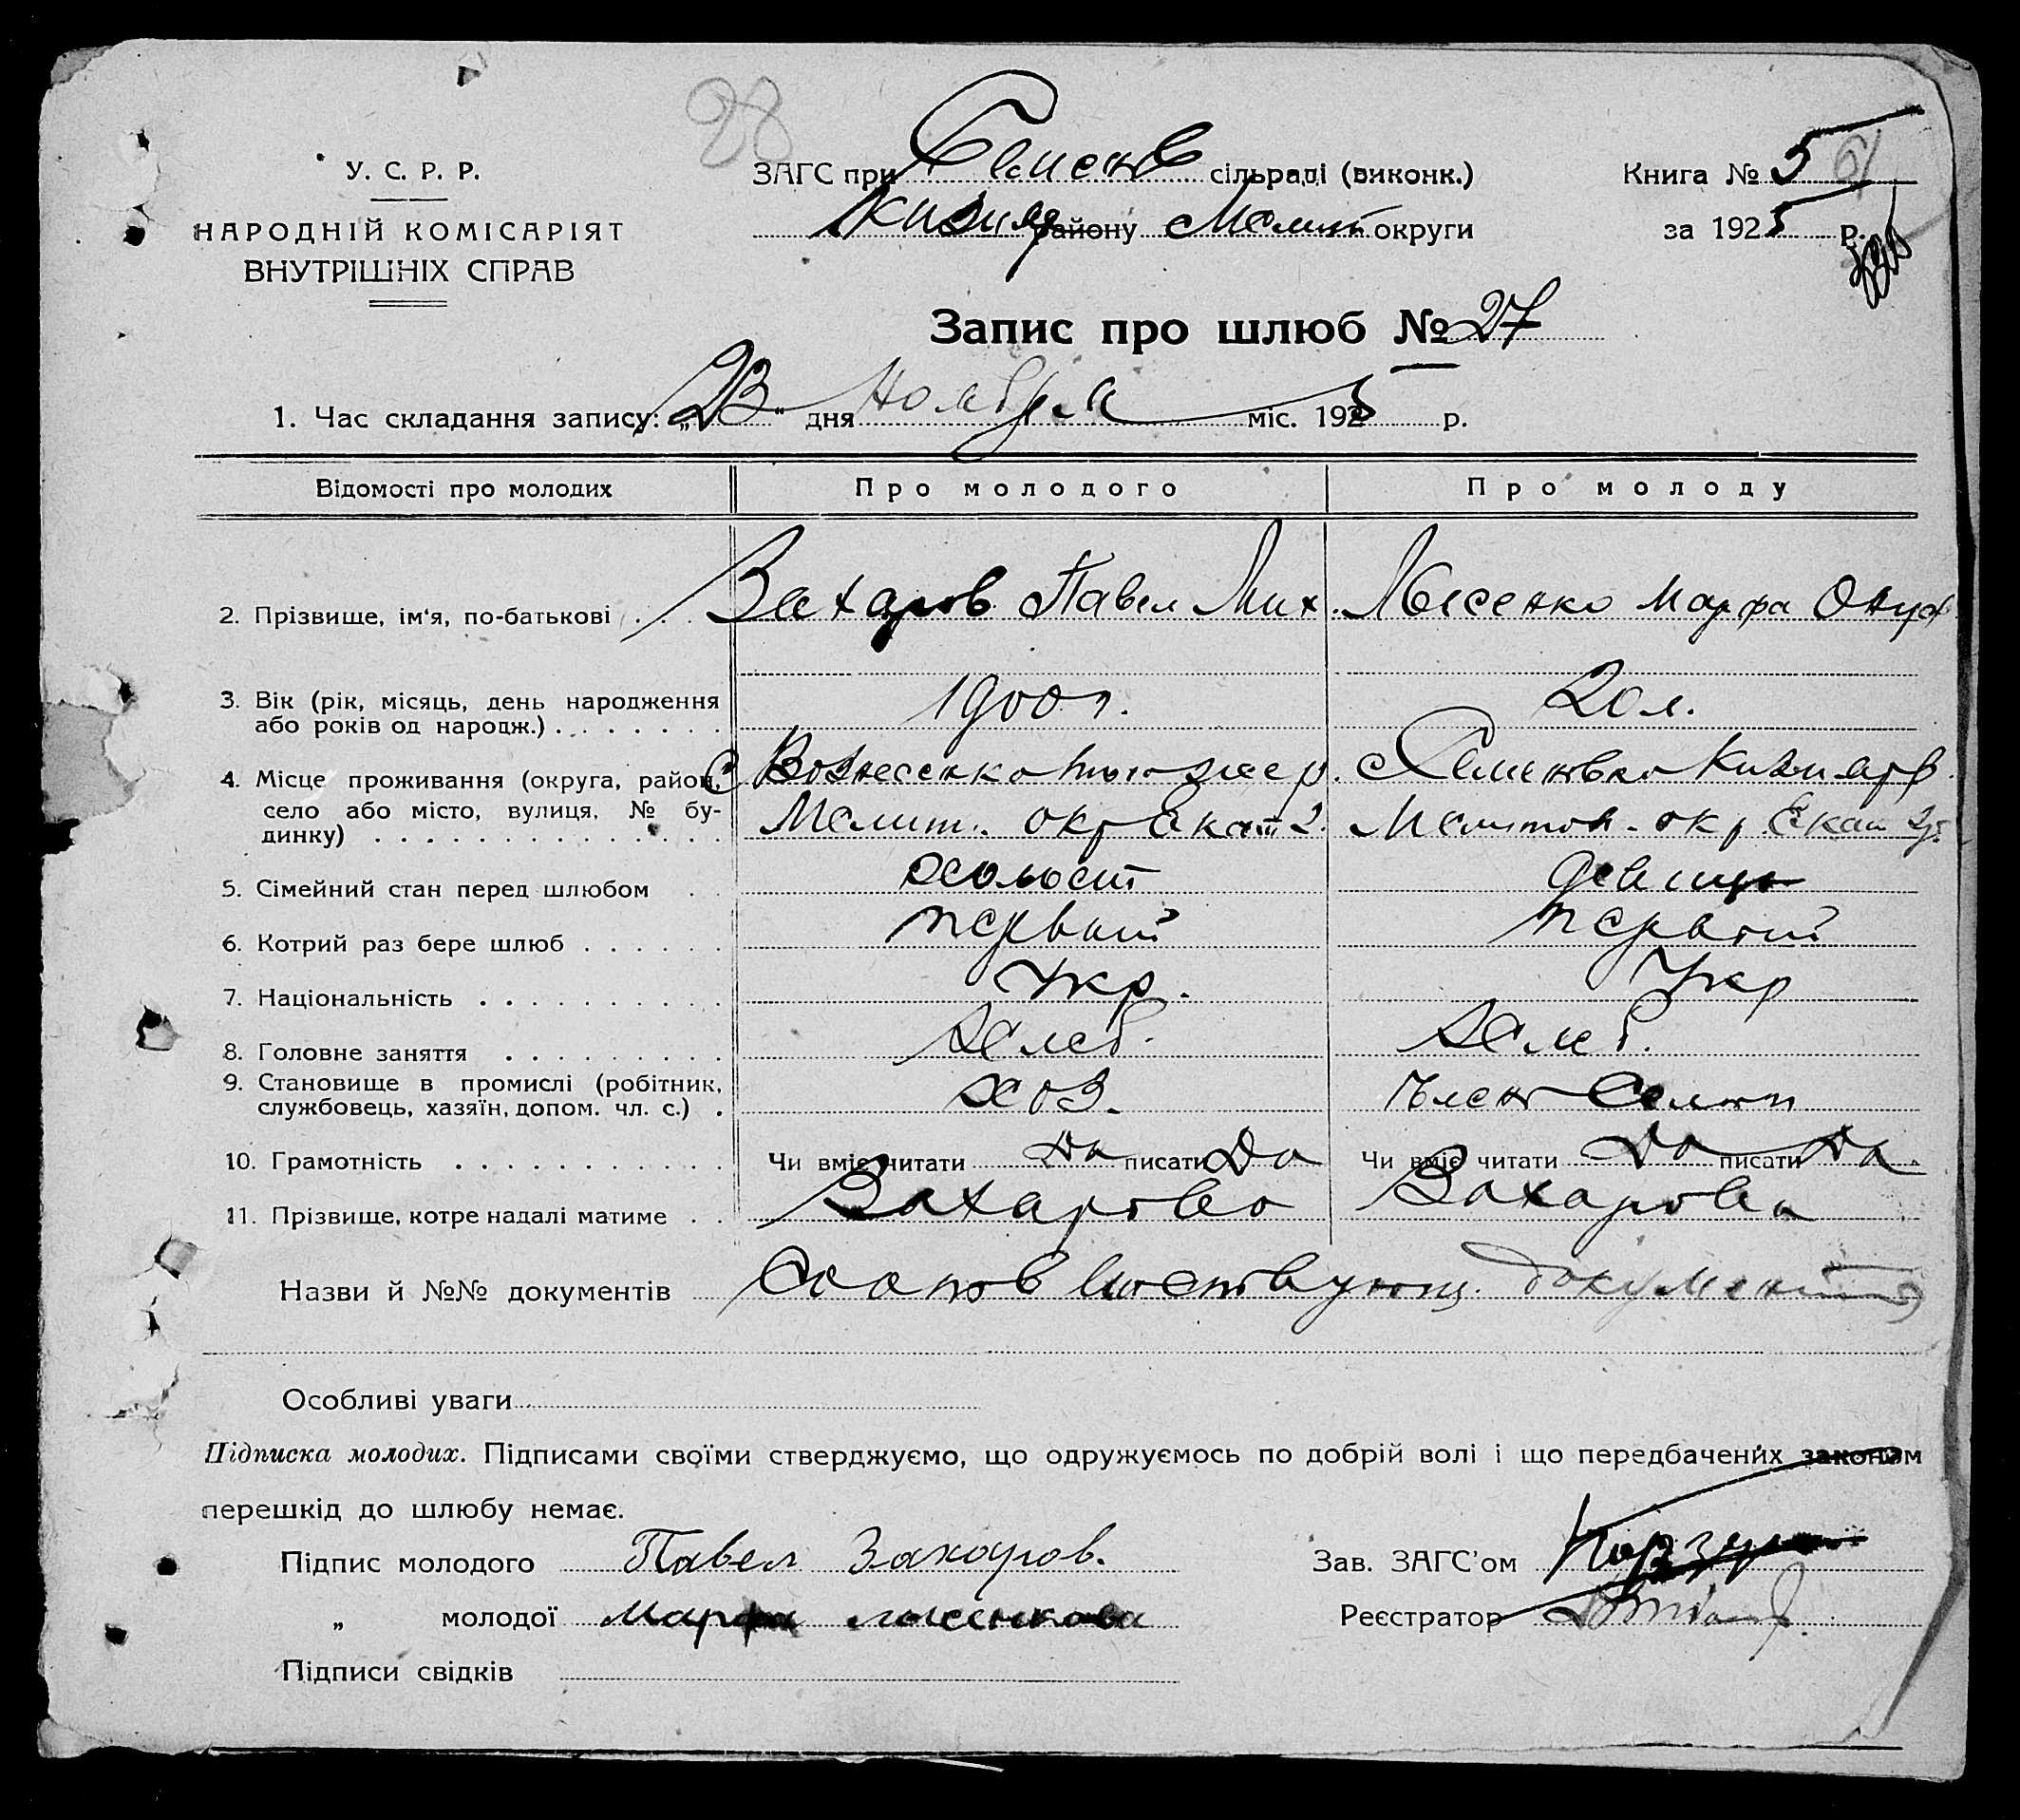 28
У. С. Р. Р.
НАРОДНІЙ КОМІСАРІЯТ
ВНУТРІШНІХ СПРАВ
ЗАГС при Семенв сільраді (виконк.)
Кизияр району Мелит округи
Книга № 5 61
за 1925 р.
Запис про шлюб № 27
1. Час складання запису: „23" дня Ноября міс. 1925 р.
Відомості про молодих
Про молодого
Про молоду
2. Прізвище, ім'я, по-батькові . . . Захаров Павел Мих. Лысенко Марфа Онуф
3. Вік (рік, місяць, день народження 1900г. 20 л.
або років од народж.) . . . . . . . .
4. Місце проживання (округа, район, с Вознесенка р. с Семеновка Кизиярр.
село або місто, вулиця, № бу- Мелит. окр Екат г. Мелитоп. окр. Екат губ
динку) . . . . . . . . . . . . . . .
5. Сімейний стан перед шлюбом . . холост девица
6. Котрий раз бере шлюб . . . . . . первый первый
7. Національність . . . . . . . . . . Укр. Укр
8. Головне заняття . . . . . . . . . Хлеб. Хлеб.
9. Становище в промислі (робітник, хоз. Член Семьи
службовець, хазяїн, допом. чл. с.) .
10. Грамотність . . . . . . . . . . . Чи вміє читати Да писати Да Чи вміє читати Да писати Да.
11. Прізвище, котре надалі матиме . . Захарова Захарова
Назви й №№ документів Соответствующ. документ
Особливі уваги
Підписка молодих. Підписами своїми стверджуємо, що одружуємось по добрій волі і що передбачених законом
перешкід до шлюбу немає.
Підпис молодого Павел Захаров. Зав. ЗАГС'ом
„ молодої Марфа лысенкова Реєстратор
Підписи свідків